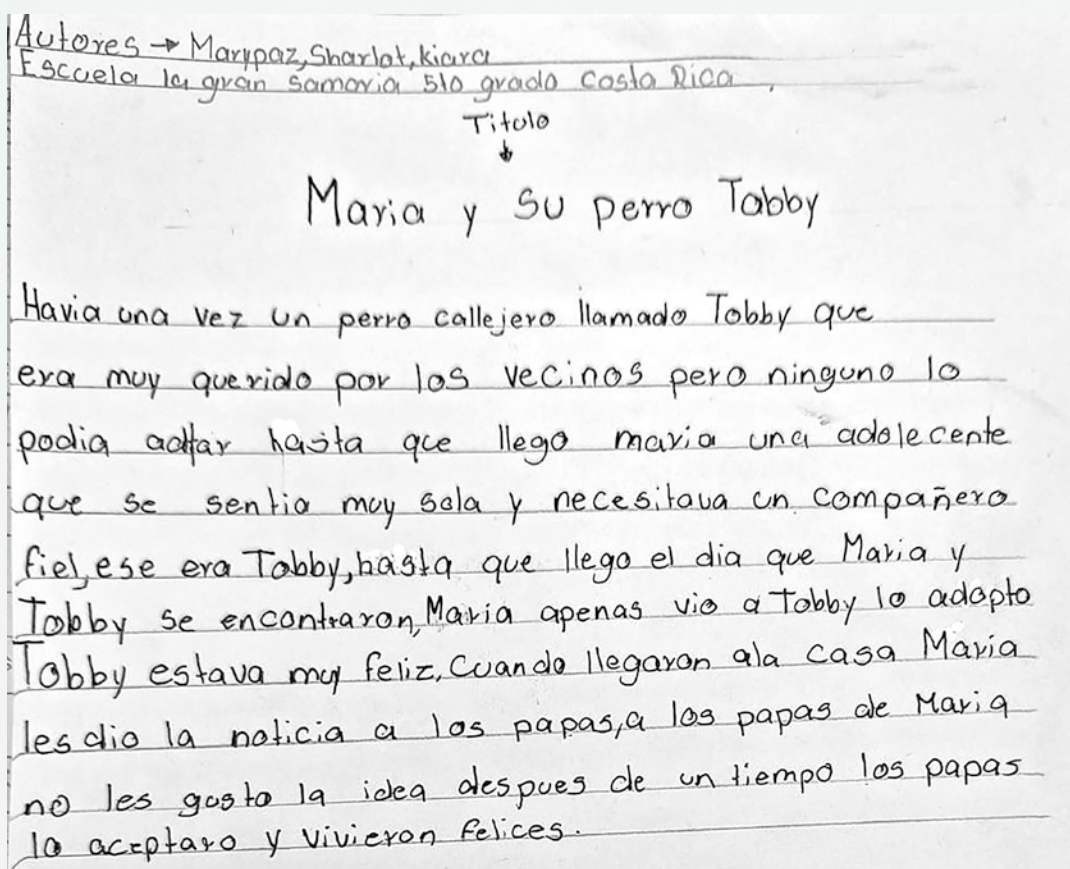 Autores → Marypaz, Sharlot, kiara
Escuela la gran samaria 5to grado Costa Rica
Titulo
Maria y su perro Tobby
Havia una vez un perro callejero llamado Tobby que
era muy querido por los vecinos pero ninguno lo
podia hasta que llego maria una adolecente
que se sentia muy sola y necesitava un compañero
fiel, ese era Tobby, hasta que llego el dia que Maria y
Tobby se encontraron, Maria apenas vio a Tobby lo adopto
Tobby estava muy feliz, Cuando llegaron ala casa Maria
les dio la noticia a los papas, a los papas de Maria
no les gusto la idea despues de un tiempo los papas
lo aceptaro y vivieron felices.